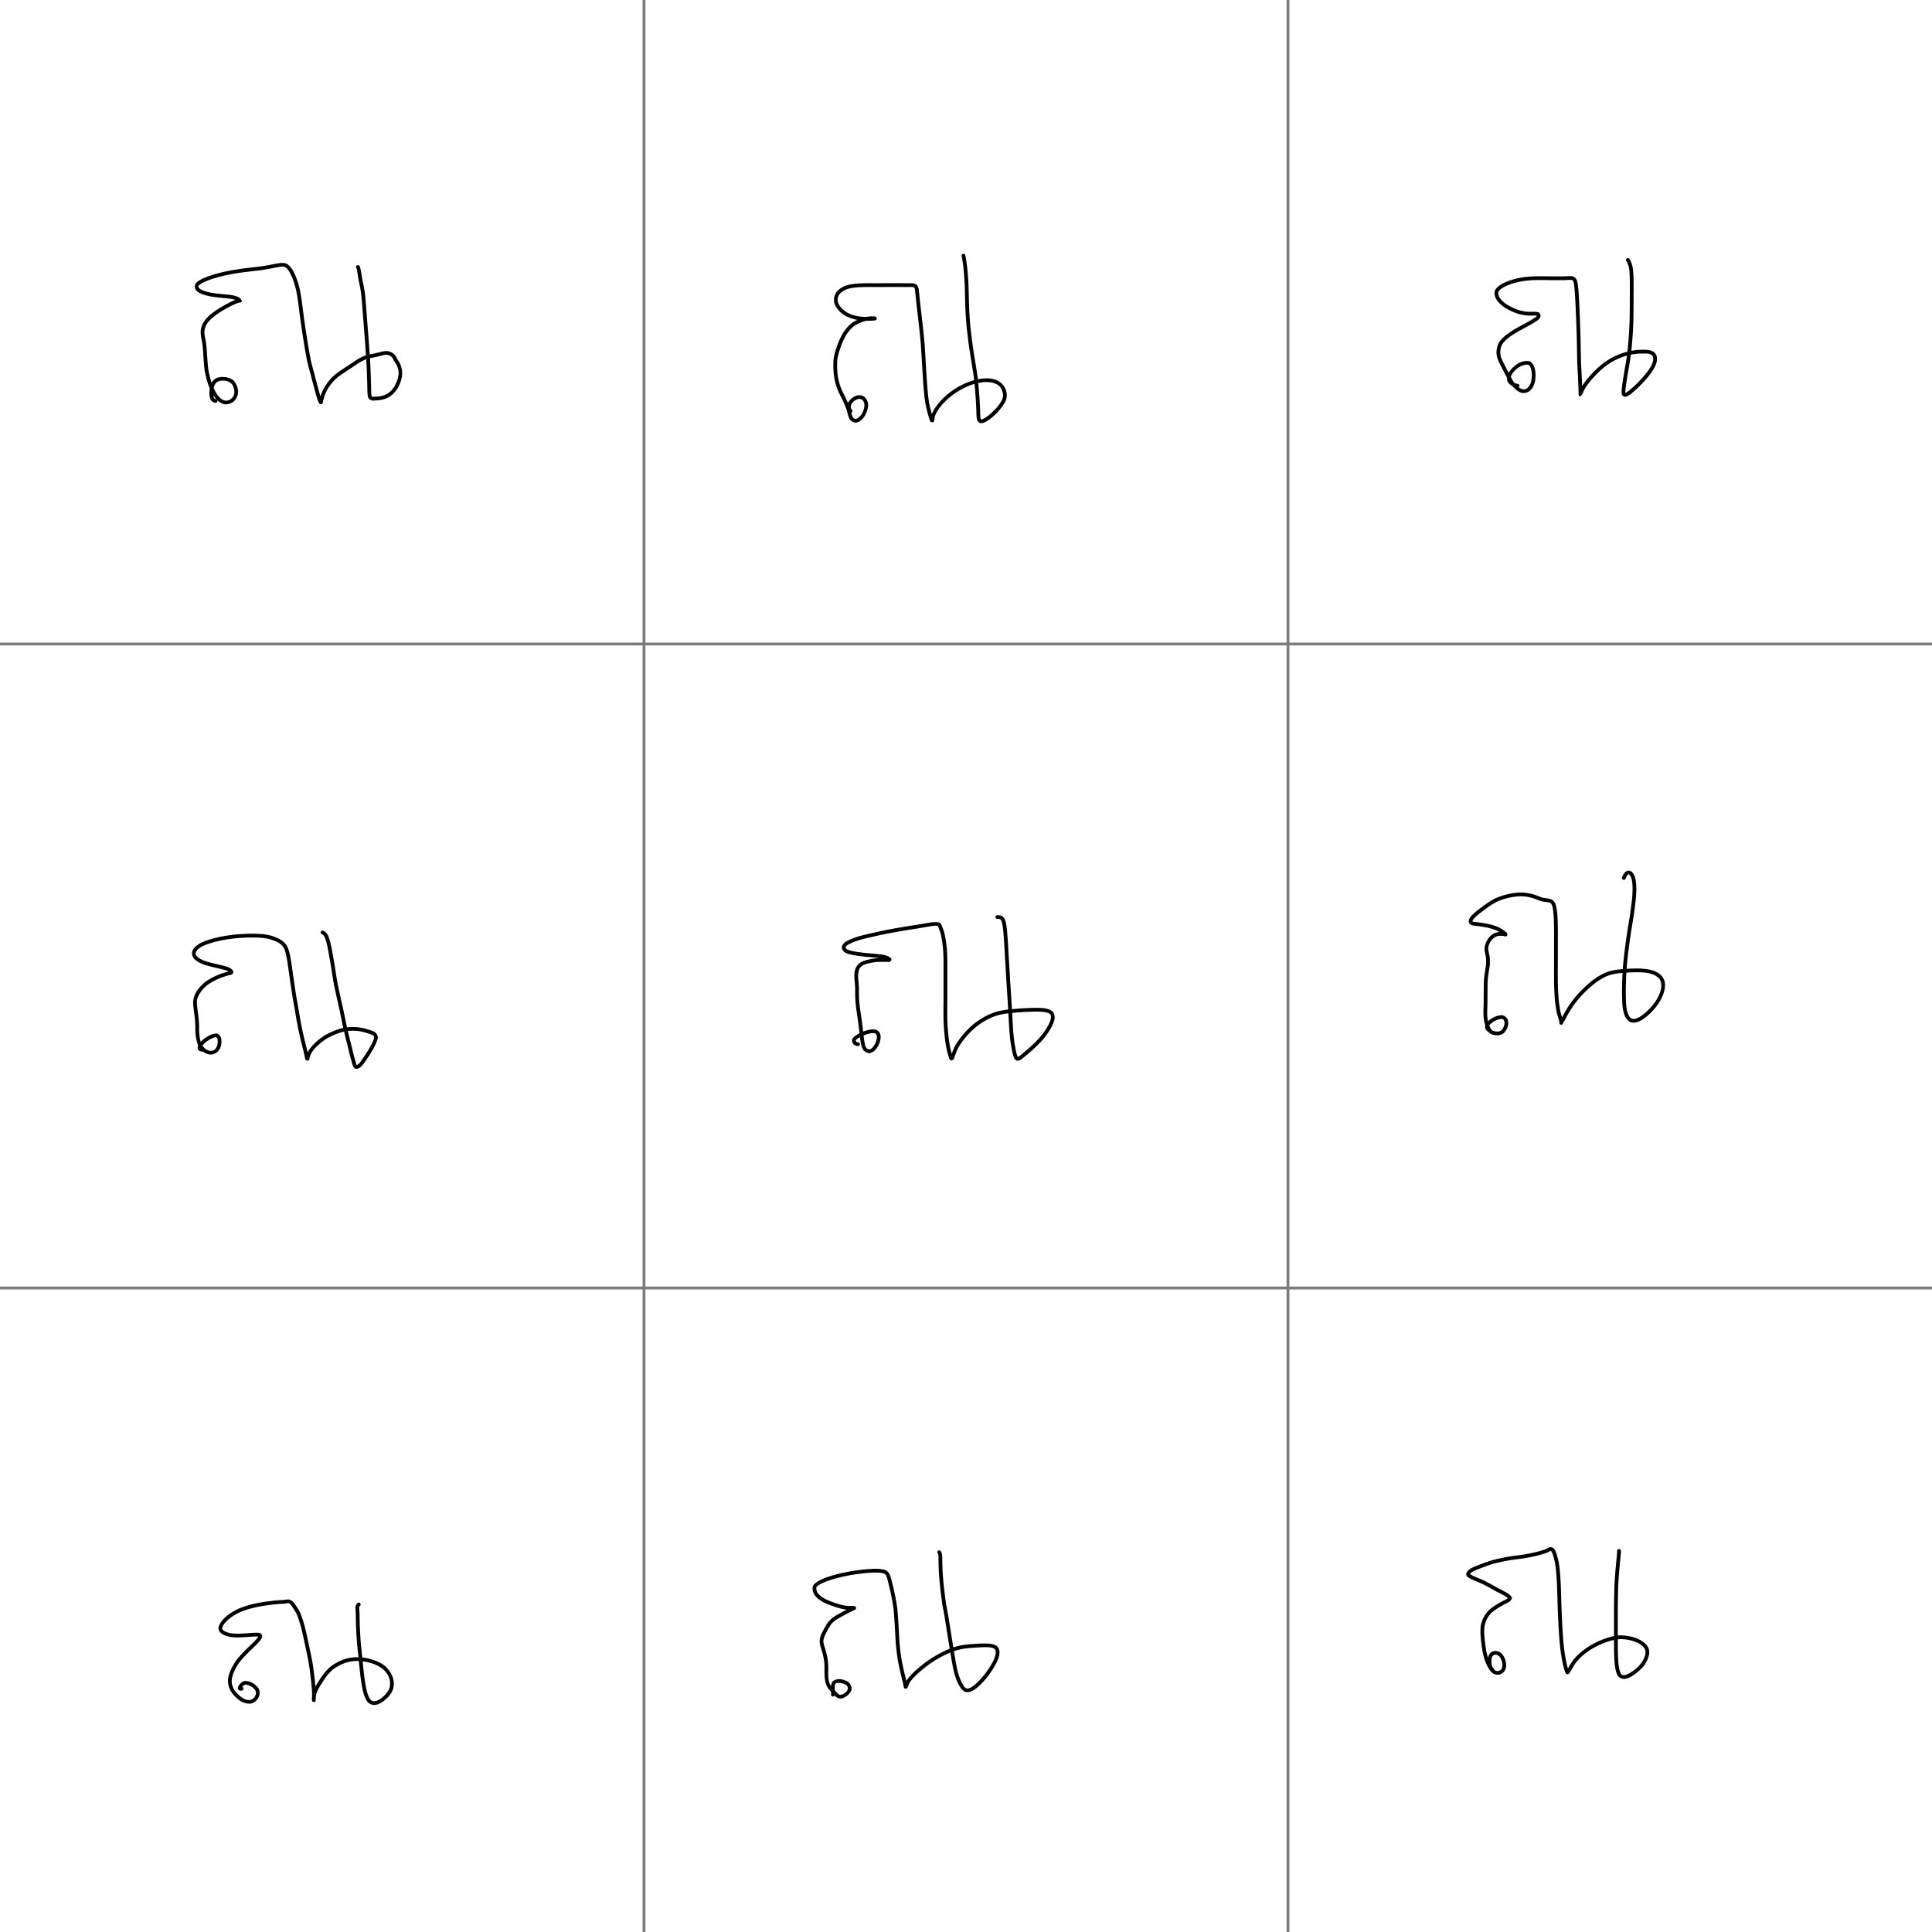 ณ ณ ณ
ณ ณ ณ
ณ ณ ณ